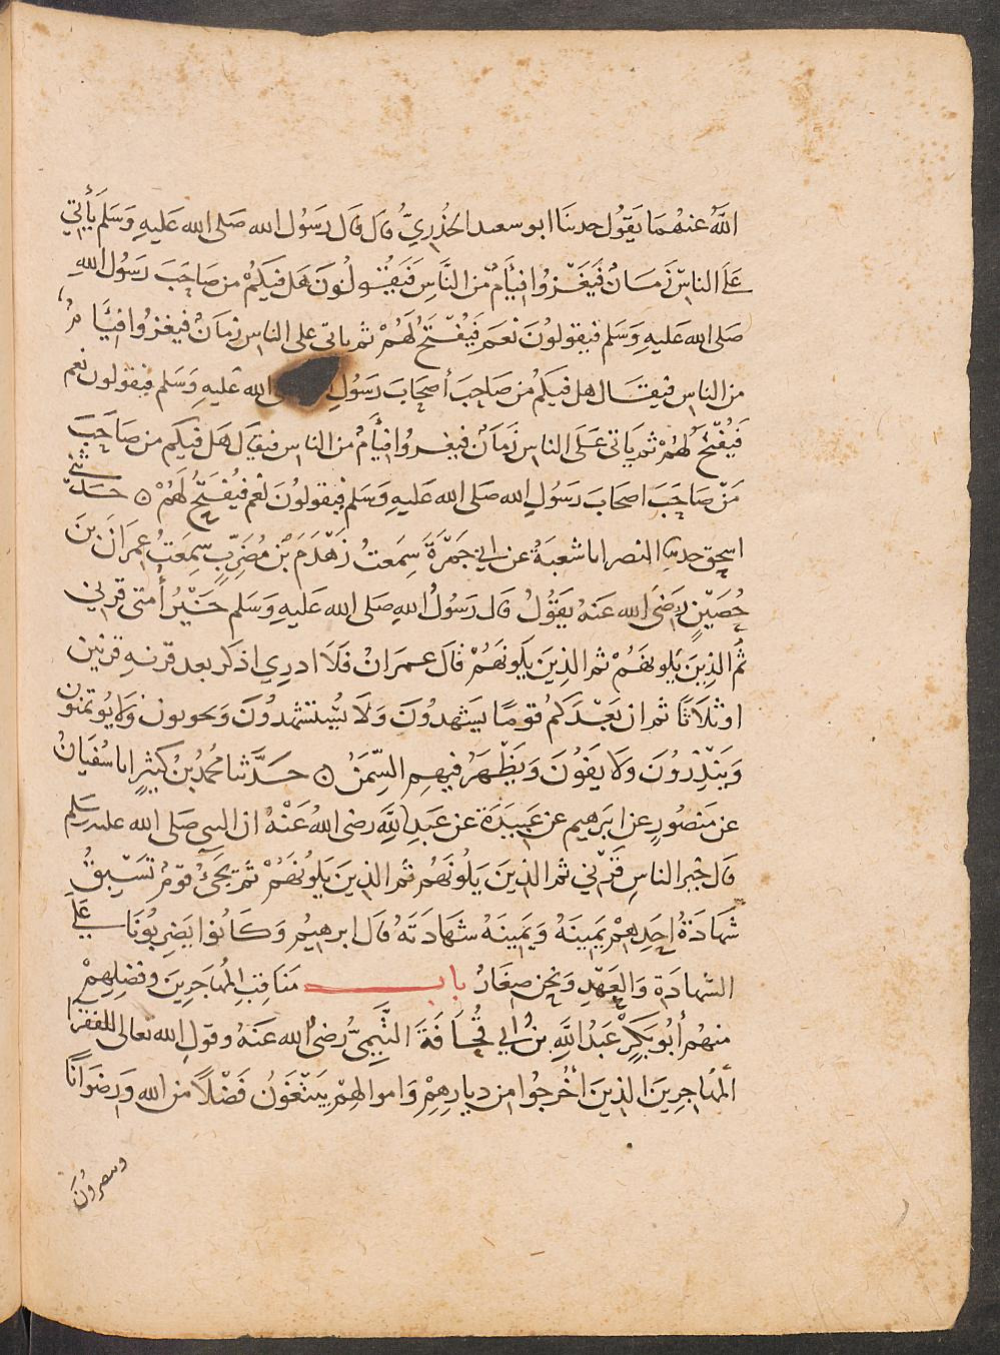 اللَّهُ عنهُمَا يَقُول حدثنا ابو سعيد الخُدْرِيُّ قال قال رَسُول الله صَلى الله عَليهِ وَسَلم يأتي
عَلَى الناسِ زَمَانٌ فَيَغْزُوا فِئَامٌ مِّن النَّاسِ فَيَقُولُونَ هَل فيكمْ من صَاحَبَ رَسُول اللهِ
صَلى الله عَليهِ وَسَلم فيقولونَ نعَم فَيُفْتَحُ لَهُمْ ثم ياتي على الناس زمَانٌ فيغزُوا فئَامٌ
من الناسِ فيقال هل فيكم من صَاحبَ أصحَابَ رَسُولِ الله عَليهِ وَسَلم فيقولون نعم
فَيُفْتَحُ لَهُمْ ثم يَاتي عَلَى الناس زَمَانٌ فيغزوا فِئَامٌ من الناس فيقال هَل فيكم من صَاحَبَ
مَنْ صَاحَبَ اصحَابَ رَسُولِ الله صَلى الله عَليهِ وَسَلم فيقولونَ نعم فيُفتَحُ لَهُمْ ۞ حَدَّثني
اسحٰق حدثنا النصر انا شعبَةُ عن ابي جَمْرَةَ سَمِعتُ زَهْدَمَ بْنَ مُضَرِّبٍ سَمِعَتُ عِمرَانَ بنَ
حُصَيْنٍ رَضيَ الله عَنهُ يَقُولُ قال رَسُولُ اللهِ صَلى الله عَليهِ وَسَلم خَيْرُ أُمتى قرني
ثُم الذِينَ يَلونهُمْ ثم الذِينَ يَلونَهُمْ قالَ عمرَانُ فَلَا ادرِي اذكر بعد قرنهِ قرنين
او ثَلَاثًا ثم ان بَعْدَكم قومًا يَشهدُونَ وَلَا يُسْتَشْهدُونَ وَيخونون وَلا يُوتمنون
وَيَنْذِرُونَ وَلا يَفُونَ وَيَظْهَرُ فيهِم السِّمَنُ ۞ حَدَّثَنا مُحمدُ بنُ كَثِيرٍ انا سُفيَانُ
عن مَنصُورٍ عن ابرهيم عن عَبِيدَةَ عن عَبدِ اللَّهِ رضى اللهُ عَنْهُ ان النبي صَلى الله عليه وسلم
قال خَير الناسِ قَرْني ثم الذينَ يَلُونَهُم ثم الذين يَلُونَهُمْ ثم يَجِيءُ قومٌ تَسْبِقُ
شَهَادَةُ احَدِهِمْ يَمِينَهُ وَيَمِينُهُ شَهَادَتَهُ قالَ ابرهيمُ وَكَانُوا يَضرِبُونَا عَلَى
الشهادَةِ وَالعَهْدِ وَنحن صِغَارٌ باب مَنَاقبِ المُهَاجَرِينَ وفضلِهِمْ
منهُم أَبُو بَكرٍ عَبْدُ اللَّهِ بنُ ابي قُحَافَةَ التَّيمِيُّ رضي الله عَنهُ وقولِ الله تعالى للفقرا
المُهَاجِرينَ الذينَ أُخْرِجُوا من ديَارِهِمْ وَاموالهِمْ يَبْتَغُونَ فَضْلًا من الله وَرضوَانًا
وينصرُونَ